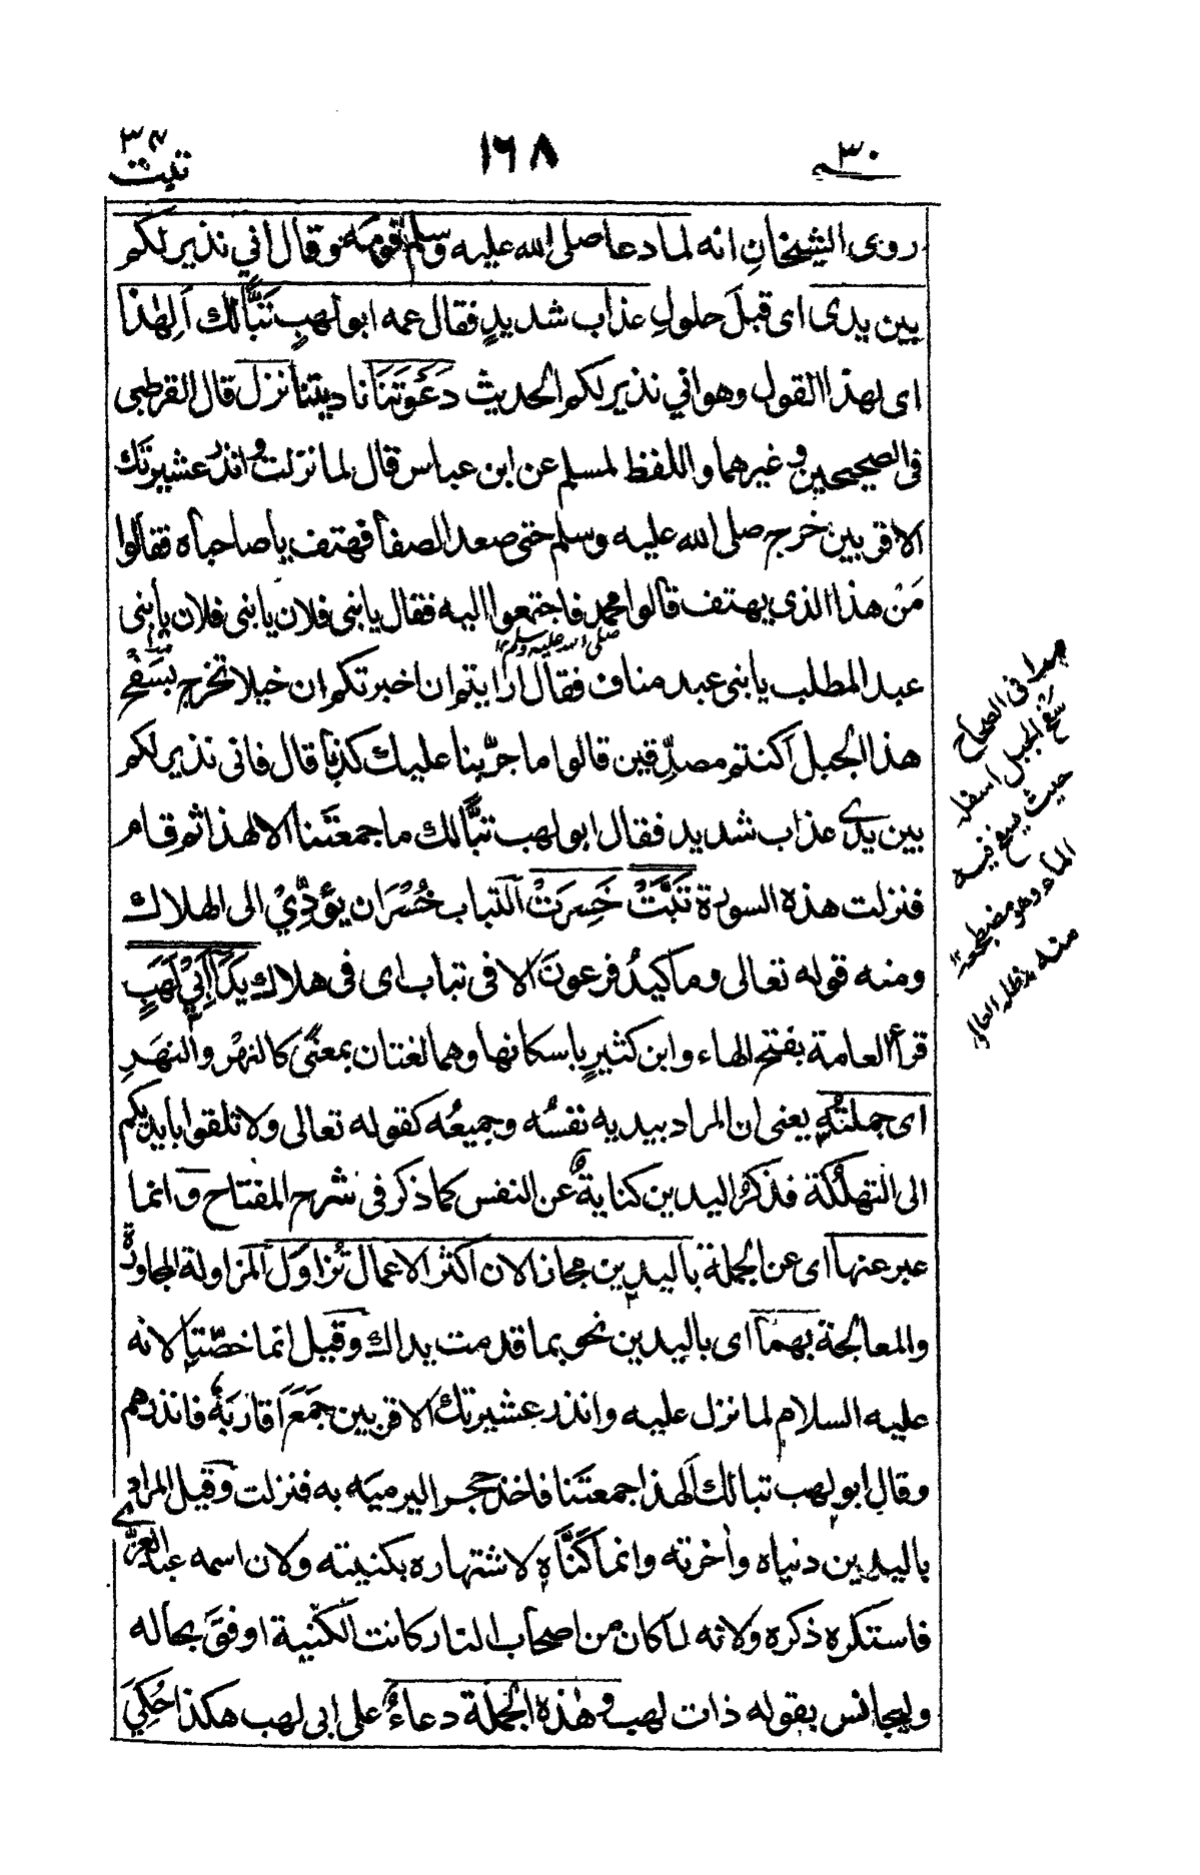 ٣٠
١٦٨
تبت
روى الشيخان انه لما دعا صلى الله عليه وسلم قومه وقال اني نذير لكم
بين يدى اى قبلَ حلولِ عذاب شديدٍ فقال عمه ابو لهبٍ تَبًّا لك اَلِهٰذا
اى لهذا القول وهو اني نذير لكم الحديث دَعَوْتَنَا ناديتنا نزل قال القرطبى
فى الصحيحين وغيرهما واللفظ لمسلم عن ابن عباس قال لما نزلت وانذر عشيرتك
الاقربين خرج صلى الله عليه وسلم حتى صعد الصفا فهتف يا صاحباه فقالوا
مَنْ هذا الذي يهتف قالوا محمد فاجتمعوا اليه فقال يا بنى فلان يا بنى فلان يا بنى
صلى الله عليه وسلم
عبد المطلب يا بنى عبد مناف فقال ارايتم ان اخبرتكم ان خيلا تخرج بسَفْح
هذا الجبل اكنتم مصدِّقين قالوا ما جرّبنا عليك كذبا قال فانى نذير لكم
بين يدى عذاب شديد فقال ابو لهب تبًّا لك ما جمعتَنا الا لهذا ثم قام
فنزلت هذه السورة تَبَّتْ خَسِرَتْ التباب خُسْرَان يؤدِّيْ الى الهلاك
ومنه قوله تعالى وما كيدُ فرعونَ الا فى تباب اى فى هلاك يَدَآ اَبِيْ لَهَبٍ
قرأ العامة بفتح الهاء وابن كثيرٍ باسكانها وهما لغتان بمعنًى كالنهْر والنهَرِ
اى جملتُه يعنى ان المراد بيديه نفسُه وجميعُه كقوله تعالى ولا تلقوا بايديكم
الى التهلكة فذكرُ اليدين كنايةٌ عن النفس كما ذكر فى شرح المفتاح وانما
عبر عنها اى عن الجملة باليدين مجازا لان اكثر الاعمال تُزَاوَل المزاولة المحاولة
والمعالجة بهما اى باليدين نحو بما قدمت يداك وقيل انما خصّتا لانه
عليه السلام لما نزل عليه وانذر عشيرتك الاقربين جَمَعَ اقاربَهٗ فانذرهم
وقال ابو لهب تبا لك اَلهذا جمعتَنا فاخذ حجرا ليرميَه به فنزلت وقيل المراد
باليدين دنياه واخرته وانما كَنَّاهُ لاشتهاره بكنيته ولان اسمه عبد العزّٰى
فاستكره ذكره ولانه لما كان من اصحاب النار كانت الكنية اوفقَ بحاله
وليجانس بقوله ذات لهب وهٰذه الجملة دعاءٌ على ابى لهب هكذا حُكِيَ
فى الصحاح
سفح الجبل اسفله
حيث يسفح فيه
الماء وهو مضطجعه
منه مدظله العالى